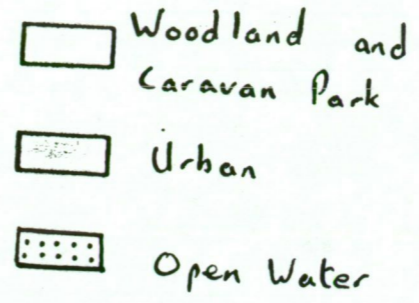 Woodland and
Caravan Park
Urban
Open Water